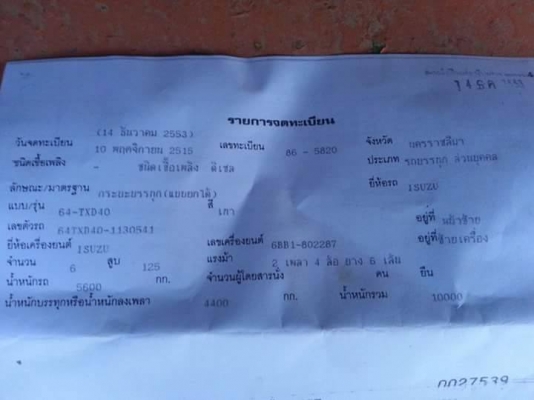 รายการจดทะเบียน
(14 ธันวาคม 2553)
วันจดทะเบียน 10 พฤศจิกายน 2515 เลขทะเบียน 86 - 5820 จังหวัด นครราชสีมา
ชนิดเชื้อเพลิง - ชนิดเชื้อเพลิง ดีเซล ประเภท รถบรรทุก ส่วนบุคคล
ลักษณะ/มาตรฐาน กระบะบรรทุก(แบบยกได้) ยี่ห้อรถ ISUZU
แบบ/รุ่น 64-TXD40 สี เทา
เลขตัวรถ 64TXD40-1130541 อยู่ที่ หน้าซ้าย
ยี่ห้อเครื่องยนต์ ISUZU เลขเครื่องยนต์ 6BD1-802287 อยู่ที่ ซ้ายเครื่อง
จำนวน 6 สูบ 125 แรงม้า 2 เพลา 4 ล้อ ยาง 6 เส้น
น้ำหนักรถ 5600 กก. จำนวนผู้โดยสารนั่ง คน ยืน
น้ำหนักบรรทุกหรือน้ำหนักลงเพลา 4400 กก. น้ำหนักรวม 10000
0027539